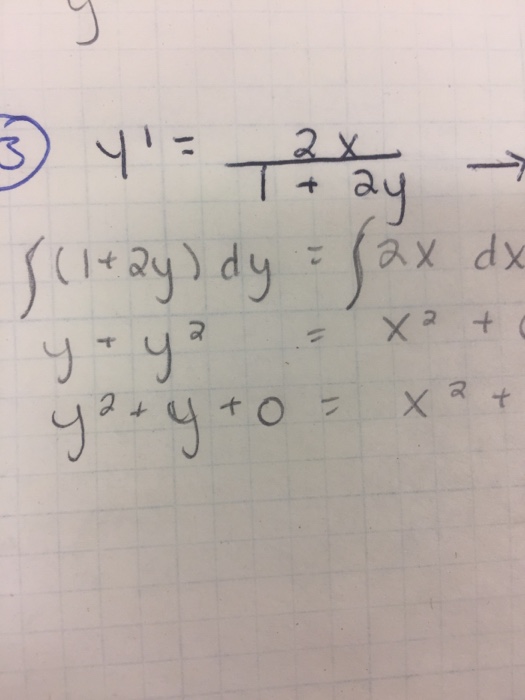 y
3 y' = 2x / 1 + 2y →
∫(1+2y) dy = ∫2x dx
y + y² = x² +
y² + y + 0 = x² +